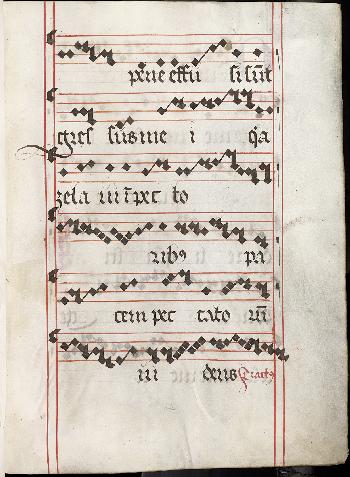 pene effu si sūt
gres sus me i q̄a
zela ui ī pec to
ribꝰ pa
cem pec cato rū
ui dens Tractꝰ